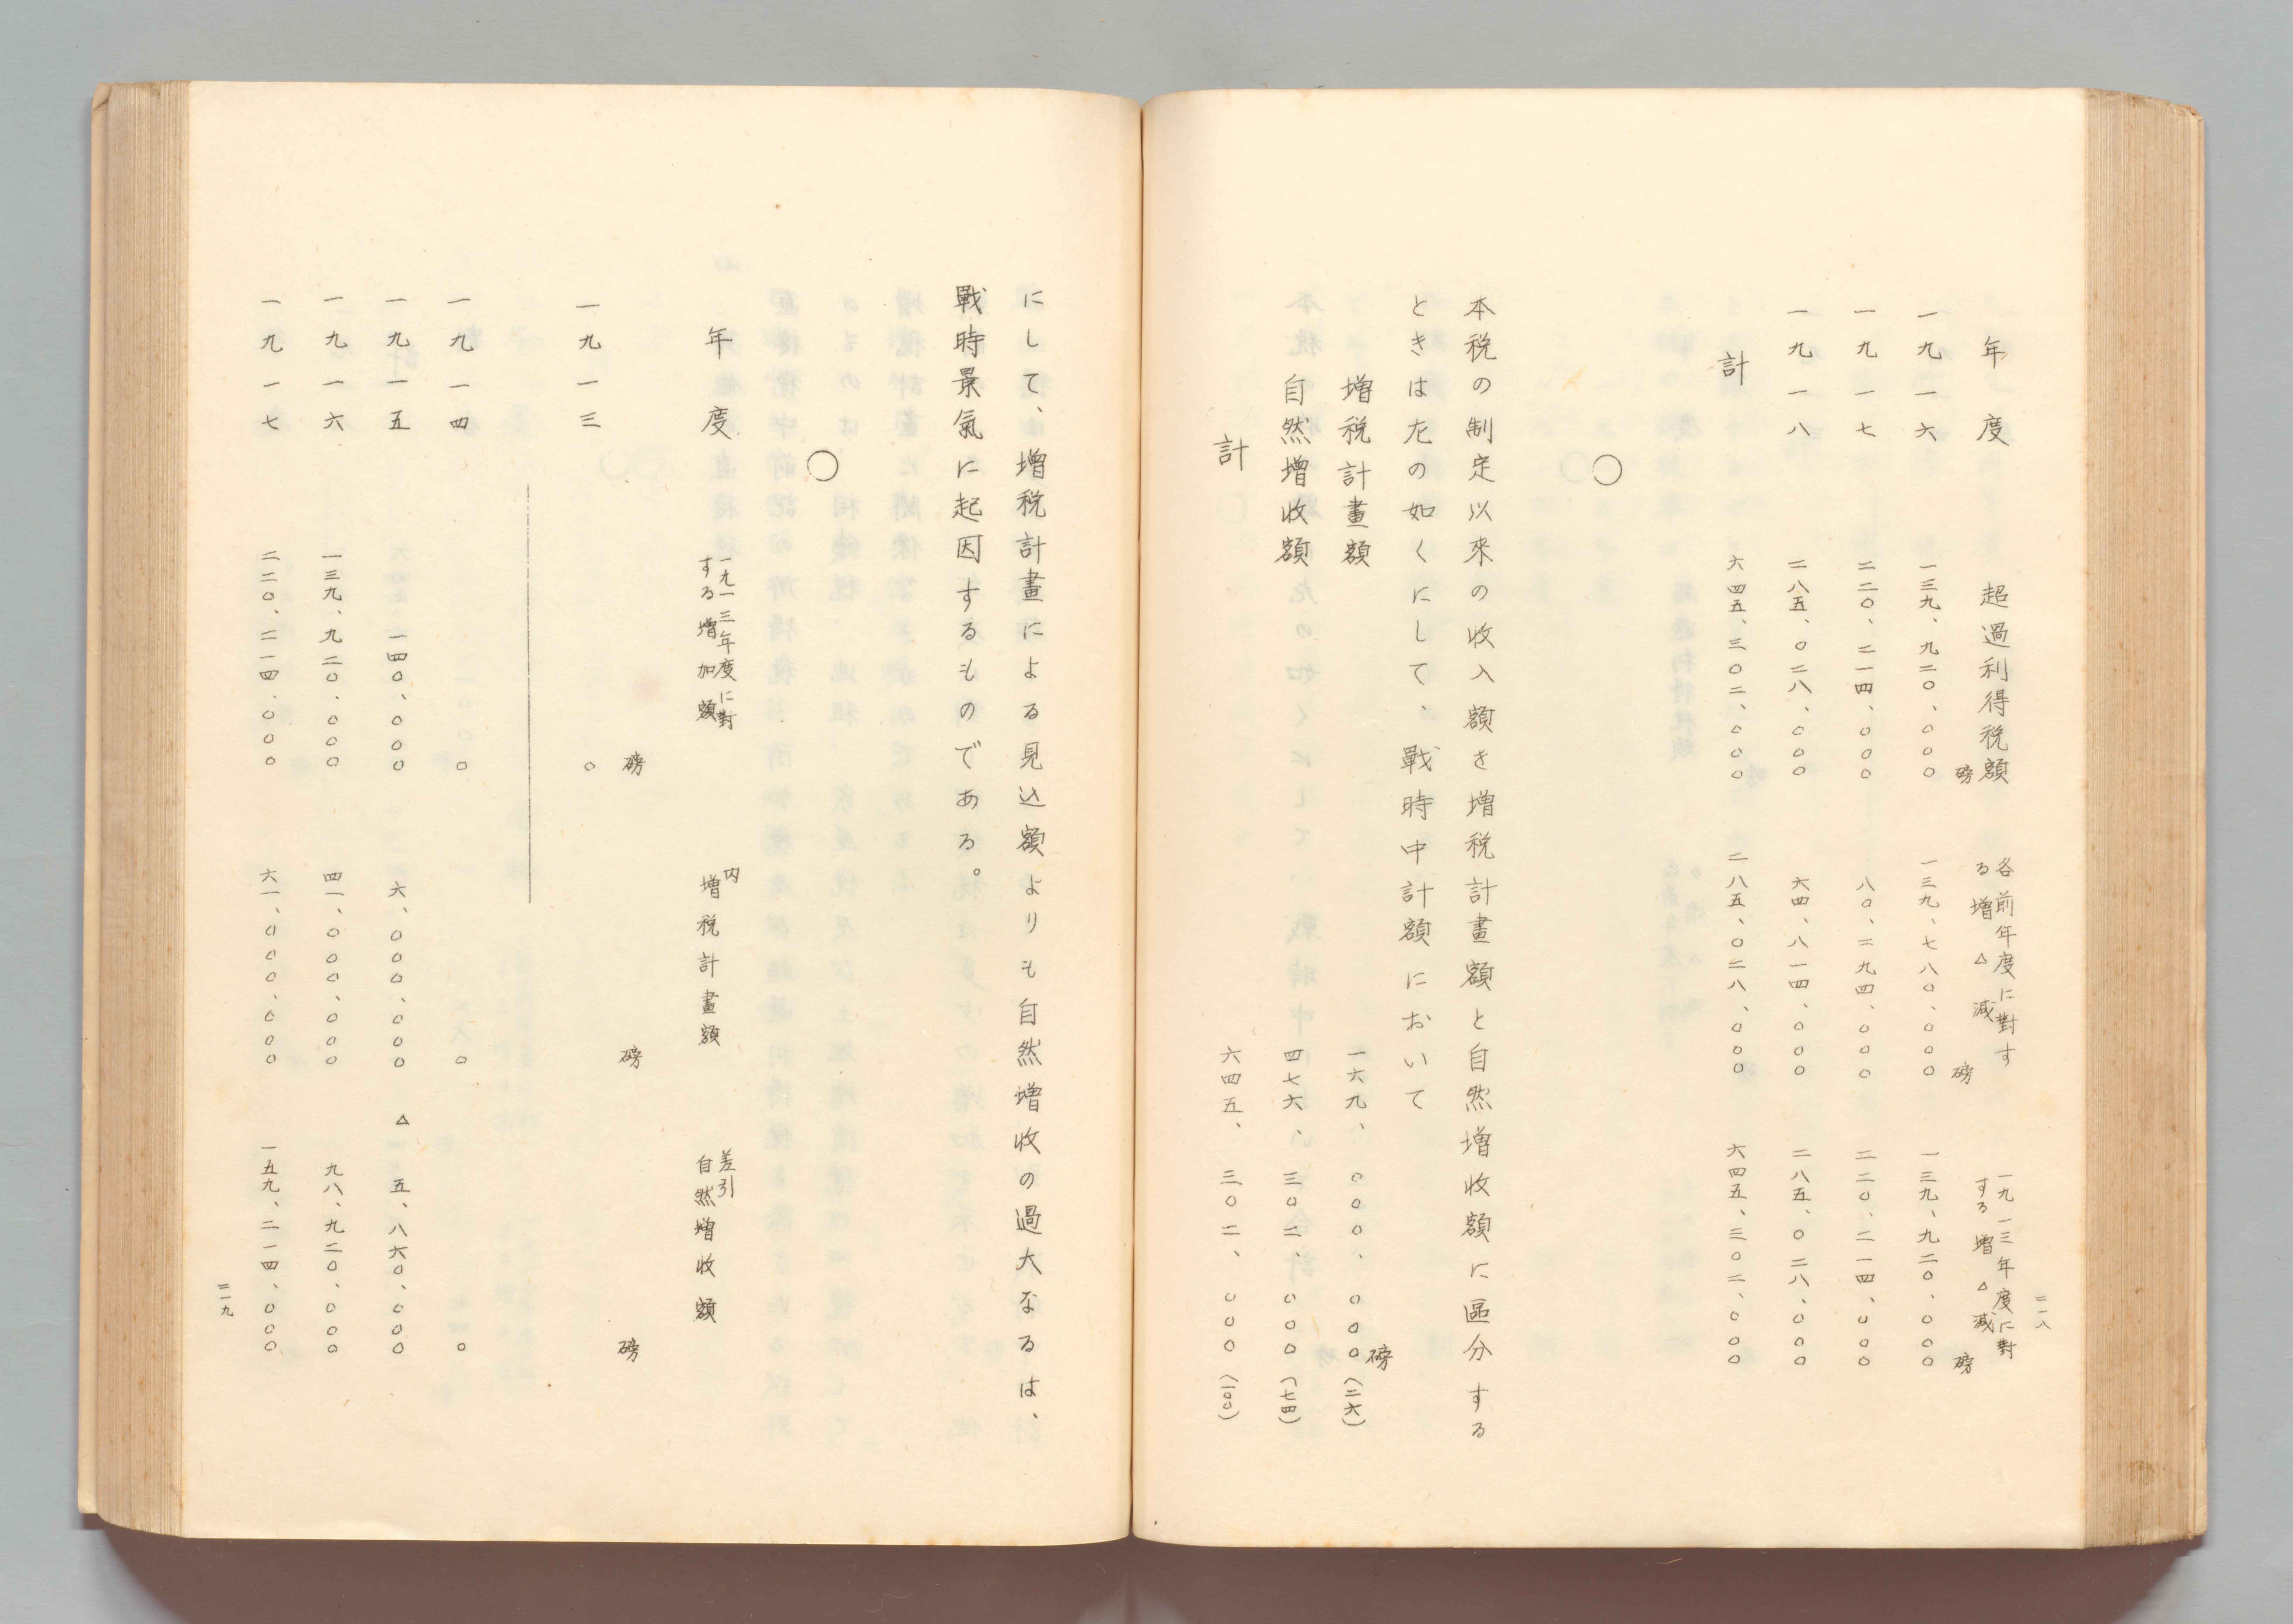 二一八
年度　超過利得税額　各前年度に對する増△減　一九一三年度に對する増△減
磅　磅　磅
一九一六　一三九、九二〇、〇〇〇　一三九、七八〇、〇〇〇　一三九、九二〇、〇〇〇
一九一七　二二〇、二一四、〇〇〇　八〇、二九四、〇〇〇　二二〇、二一四、〇〇〇
一九一八　二八五、〇二八、〇〇〇　六四、八一四、〇〇〇　二八五、〇二八、〇〇〇
計　六四五、三〇二、〇〇〇　二八五、〇二八、〇〇〇　六四五、三〇二、〇〇〇
〇
本税の制定以來の收入額を増税計畫額と自然増收額に區分する
ときは左の如くにして、戰時中計額において
磅
増税計畫額　一六九、〇〇〇、〇〇〇（二六）
自然増收額　四七六、三〇二、〇〇〇（七四）
計　六四五、三〇二、〇〇〇（一〇〇）
にして、増税計畫による見込額よりも自然増收の過大なるは、
戰時景氣に起因するものである。
〇
年度　一九一三年度に對する増加額　内増税計畫額　差引自然増收額
磅　磅　磅
一九一三　〇
一九一四　〇　〇　〇
一九一五　一四〇、〇〇〇　六、〇〇〇、〇〇〇　△五、八六〇、〇〇〇
一九一六　一三九、九二〇、〇〇〇　四一、〇〇〇、〇〇〇　九八、九二〇、〇〇〇
一九一七　二二〇、二一四、〇〇〇　六一、〇〇〇、〇〇〇　一五九、二一四、〇〇〇
二一九